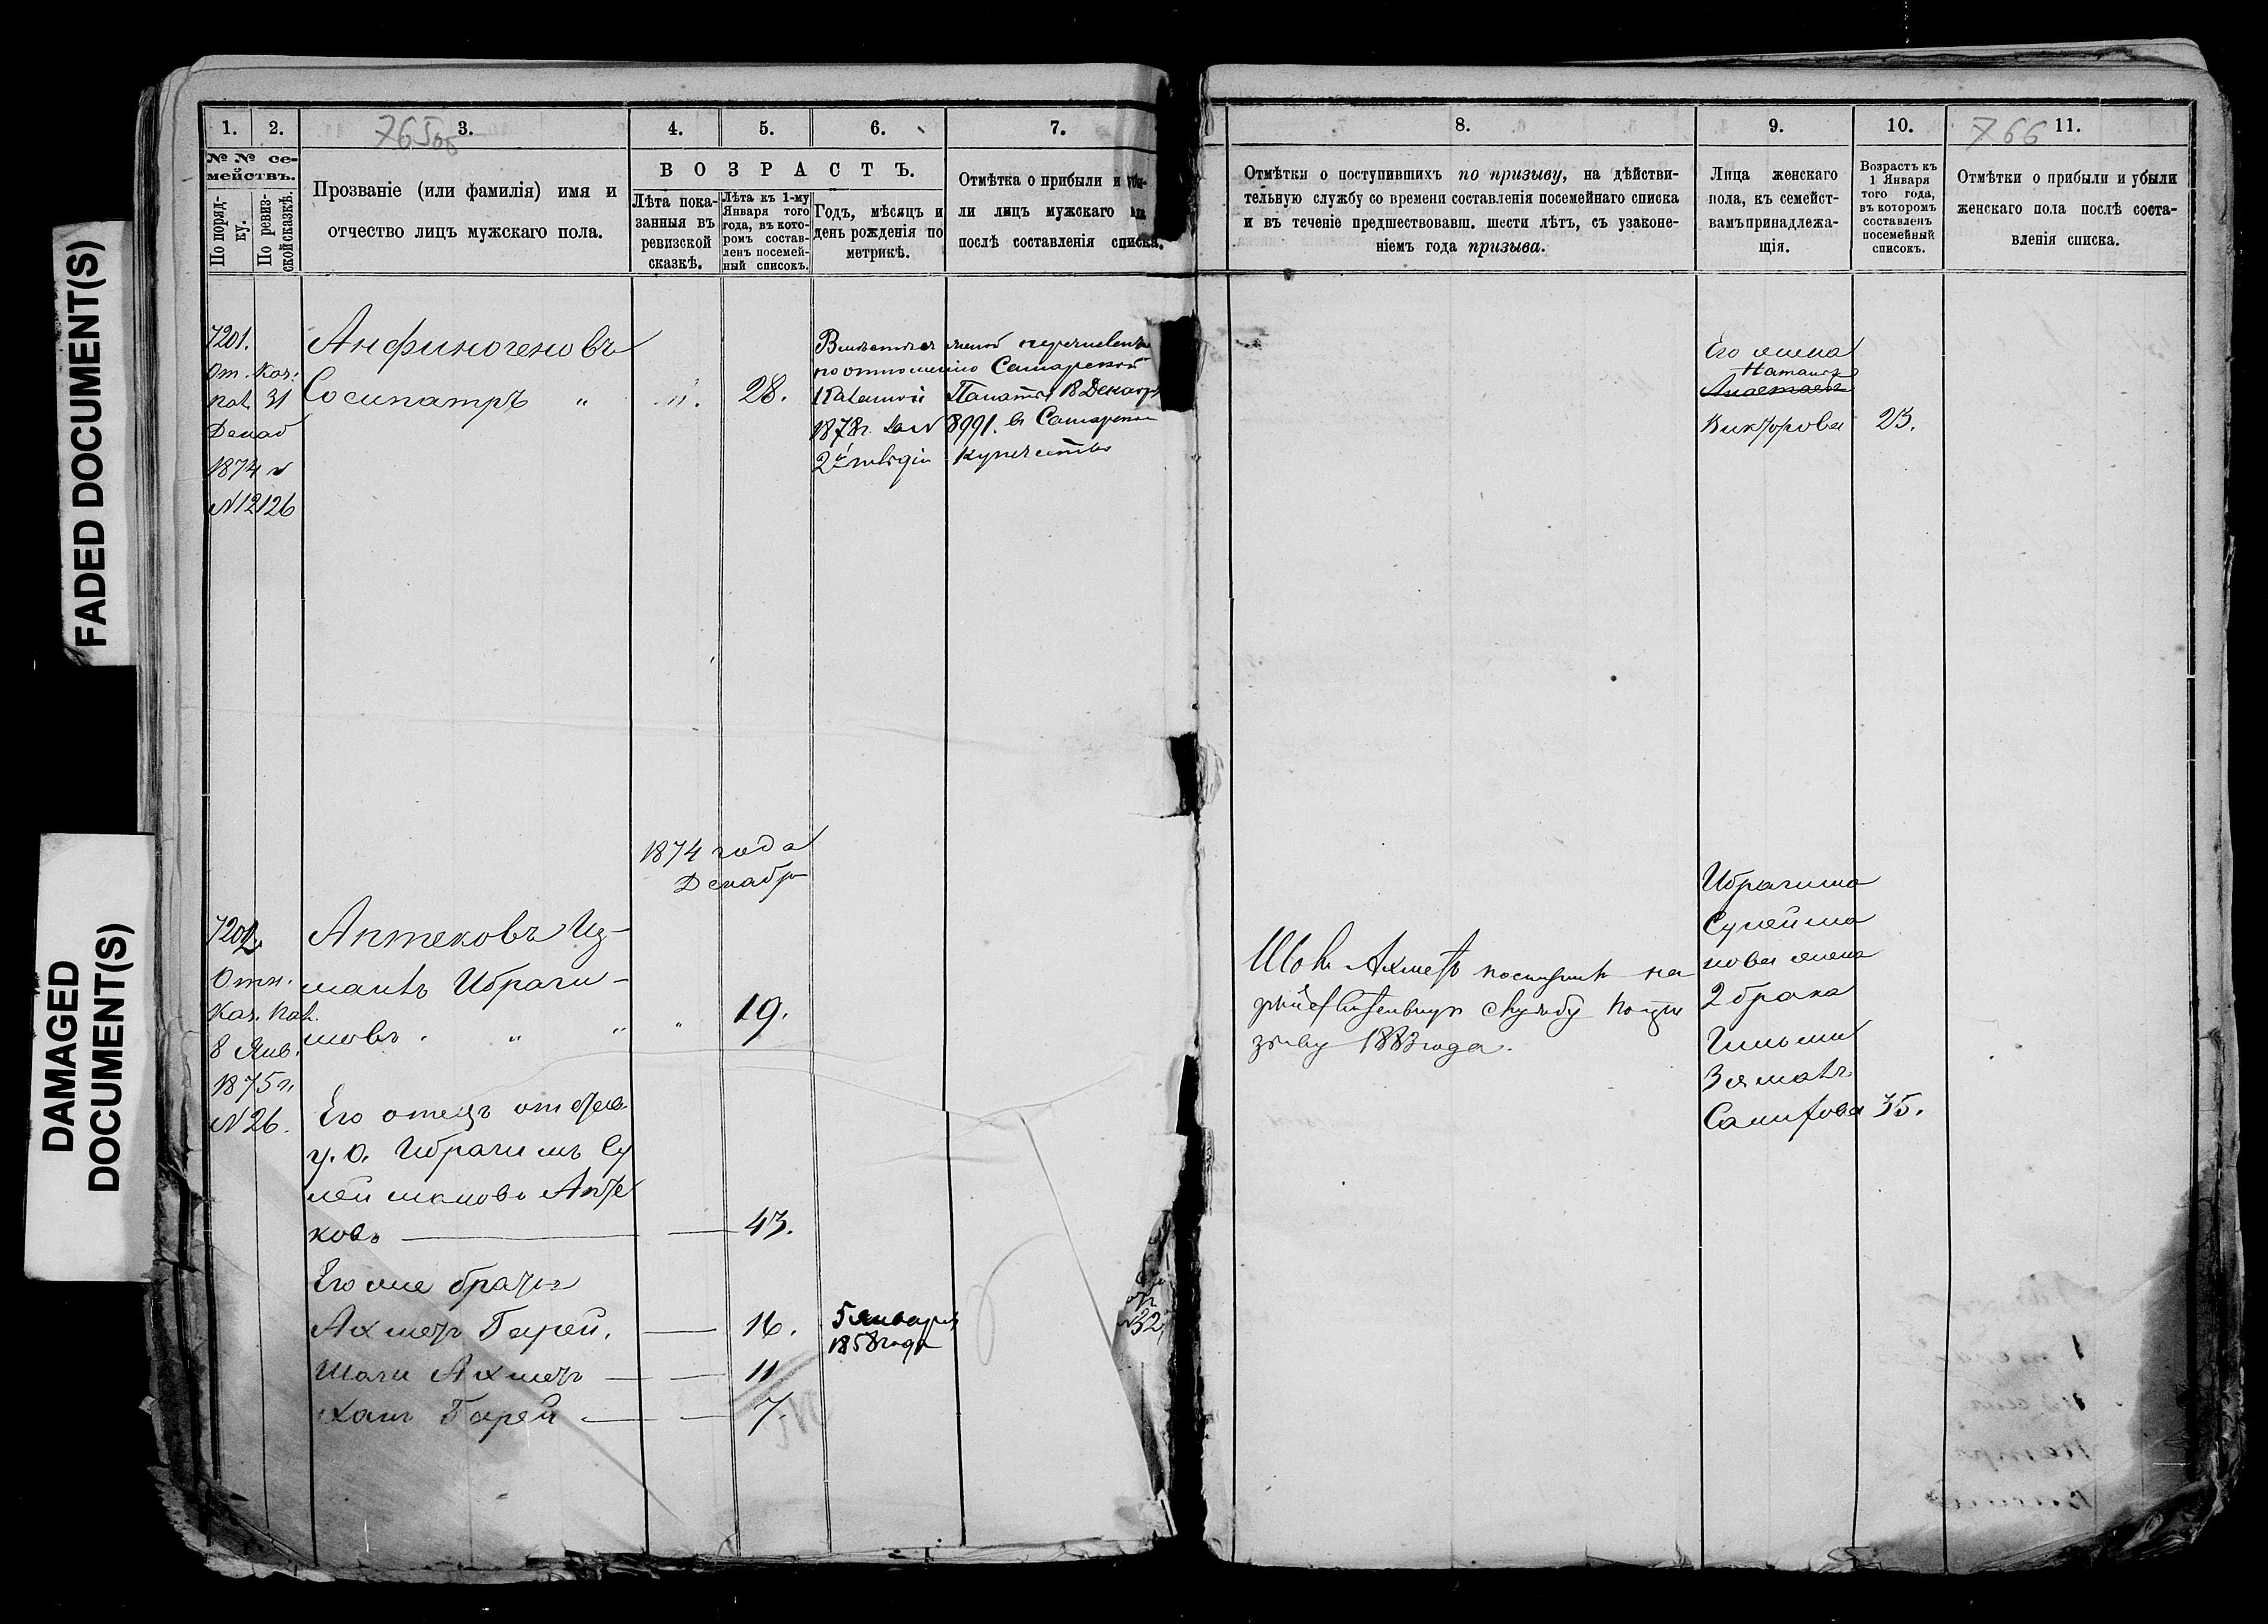 FADED DOCUMENT(S)
DAMAGED
DOCUMENT(S)
1.
2.
3.
765
4.
5.
6.
7.
№ № се-
мействъ.
По поряд-
ку.
По ревиз-
ской сказкѣ.
Прозваніе (или фамилія) имя и
отчество лицъ мужскаго пола.
ВОЗРАСТЪ.
Лѣта пока-
занныя въ
ревизской
сказкѣ.
Лѣта къ 1-му
Января того
года, въ кото-
ромъ состав-
ленъ посемей-
ный списокъ.
Годъ, мѣсяцъ и
день рожденія по
метрикѣ.
Отмѣтка о прибыли и убы-
ли лицъ мужскаго
послѣ составленія списка.
7201.
От. Каз.
Пал. 31
Декаб
1874 г
№ 12126
Анфиногеновъ
Сосипатръ "
".
28.
женой перечисленъ
по отношенію Самарской
Казенной Палаты 18 Декабр
1878 г. за № 8991. въ Самарское
2й гильдіи купечество
1874 года
Декабр
7202
Отн.
Каз. Пал.
8 Янв.
1875 г.
№ 26.
Аптековъ Из-
маилъ Ибраги-
мовъ. " "
"
19.
Его отецъ
у. о. Ибрагимъ Су
леймановъ Апте
ковъ
43.
Его же братья
Ахметъ Гарей.
16.
5 Января
1858 года
32
Шаги Ахметъ
11
Ханъ Гарей
7.
8.
9.
10.
11.
766
Отмѣтки о поступившихъ по призыву, на дѣйстви-
тельную службу со времени составленія посемейнаго списка
и въ теченіе предшествовавш. шести лѣтъ, съ узаконе-
ніемъ года призыва.
Лица женскаго
пола, къ семейст-
вамъ принадлежа-
щія.
Возрастъ къ
1 Января
того года,
въ которомъ
составленъ
посемейный
списокъ.
Отмѣтки о прибыли и убыли
женскаго пола послѣ соста-
вленія списка.
Его жена
Наталья
Викторова
23.
Ахметъ поступилъ на
дѣйствительную службу по при
зыву 1883 года.
Ибрагима
Сулейма
нова жена
2 брака
Зямалъ
Сагитова 35.